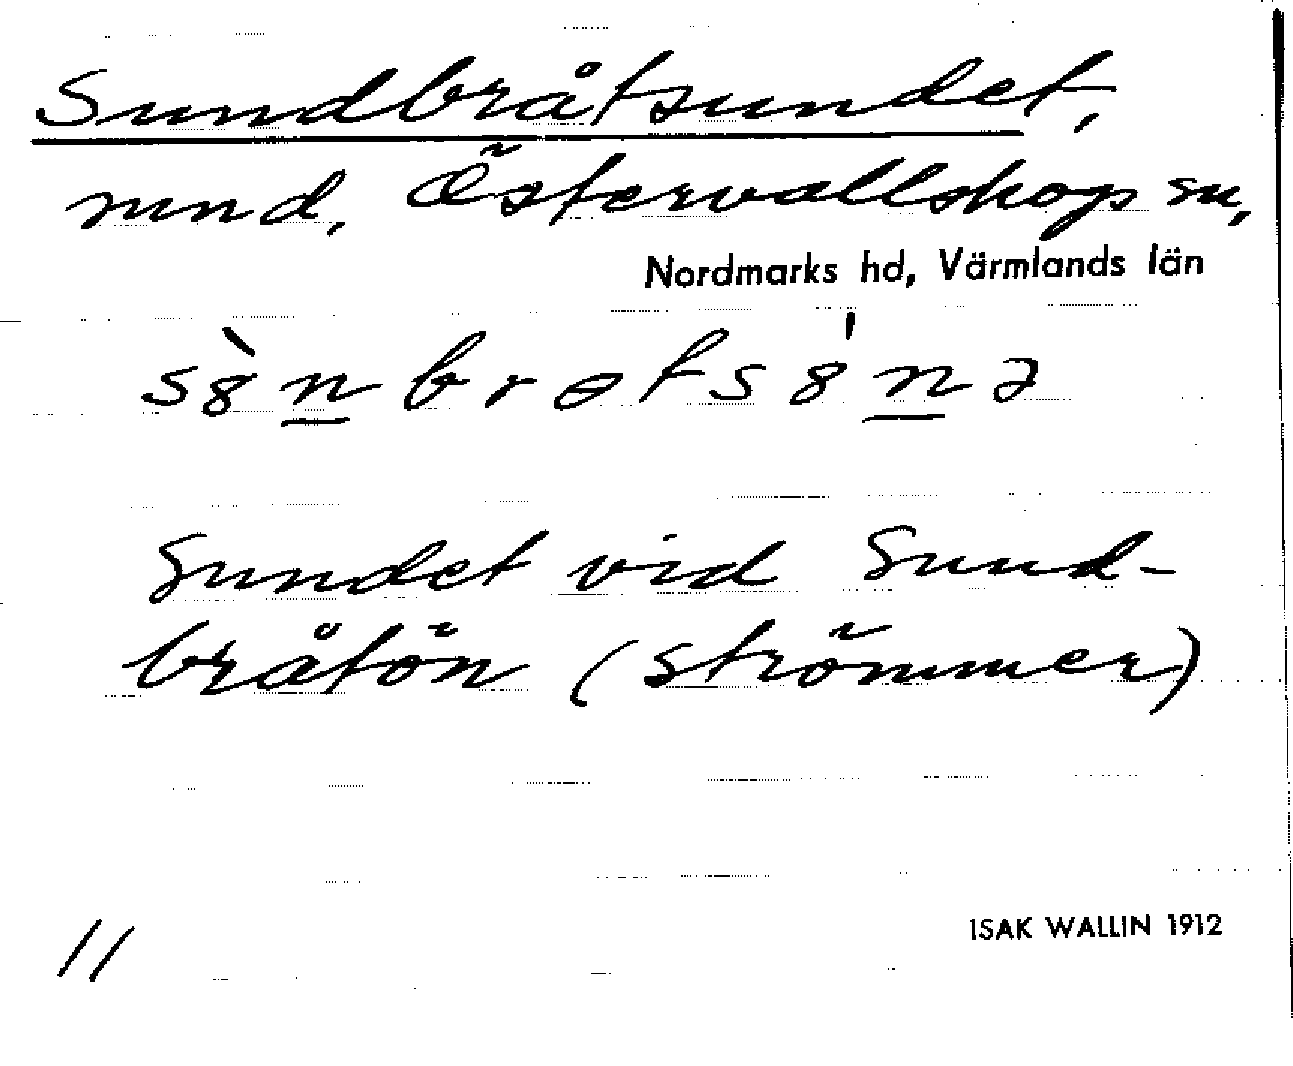 Sundbråtsundet,
sund, Östervallskogs sn,
Nordmarks hd, Värmlands län
sὸ̵n̲bratsó̵n̲ə
Sundet vid Sund-
bråtön (strömmer)
11
ISAK WALLIN 1912